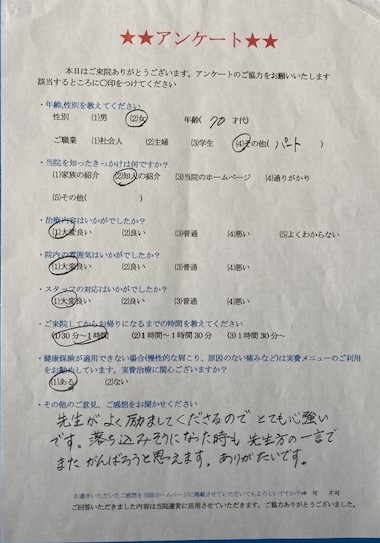 ★★アンケート★★
本日はご来院ありがとうございます。アンケートのご協力をお願いいたします
該当するところに〇印をつけてください
・年齢,性別を教えてください
性別 (1)男 (2)女 年齢( 70 才代)
ご職業 (1)社会人 (2)主婦 (3)学生 (4)その他( パート )
・当院を知ったきっかけは何ですか?
(1)家族の紹介 (2)知人の紹介 (3)当院のホームページ (4)通りがかり
(5)その他( )
・治療内容はいかがでしたか?
(1)大変良い (2)良い (3)普通 (4)悪い (5)よくわからない
・院内の雰囲気はいかがでしたか?
(1)大変良い (2)良い (3)普通 (4)悪い
・スタッフの対応はいかがでしたか?
(1)大変良い (2)良い (3)普通 (4)悪い
・ご来院してからお帰りになるまでの時間を教えてください
(1)30分～1時間 (2)1時間～1時間30分 (3)1時間30分～
・健康保険が適用できない場合(慢性的な肩こり、原因のない痛みなど)は実費メニューのご利用
をお勧めしています。実費治療に関心ございますか?
(1)ある (2)ない
・その他のご意見、ご感想をお聞かせください
先生がよく励ましてくださるのでとても心強い
です。落ち込みそうになった時も先生方の一言で
またがんばろうと思えます。ありがたいです。
お書きいただいたご感想を当院ホームページに掲載させていただいてもよろしいですか?⇒ 可 不可
ご回答いただきました内容は当院運営に活用させていただきます。ご協力ありがとうございました。